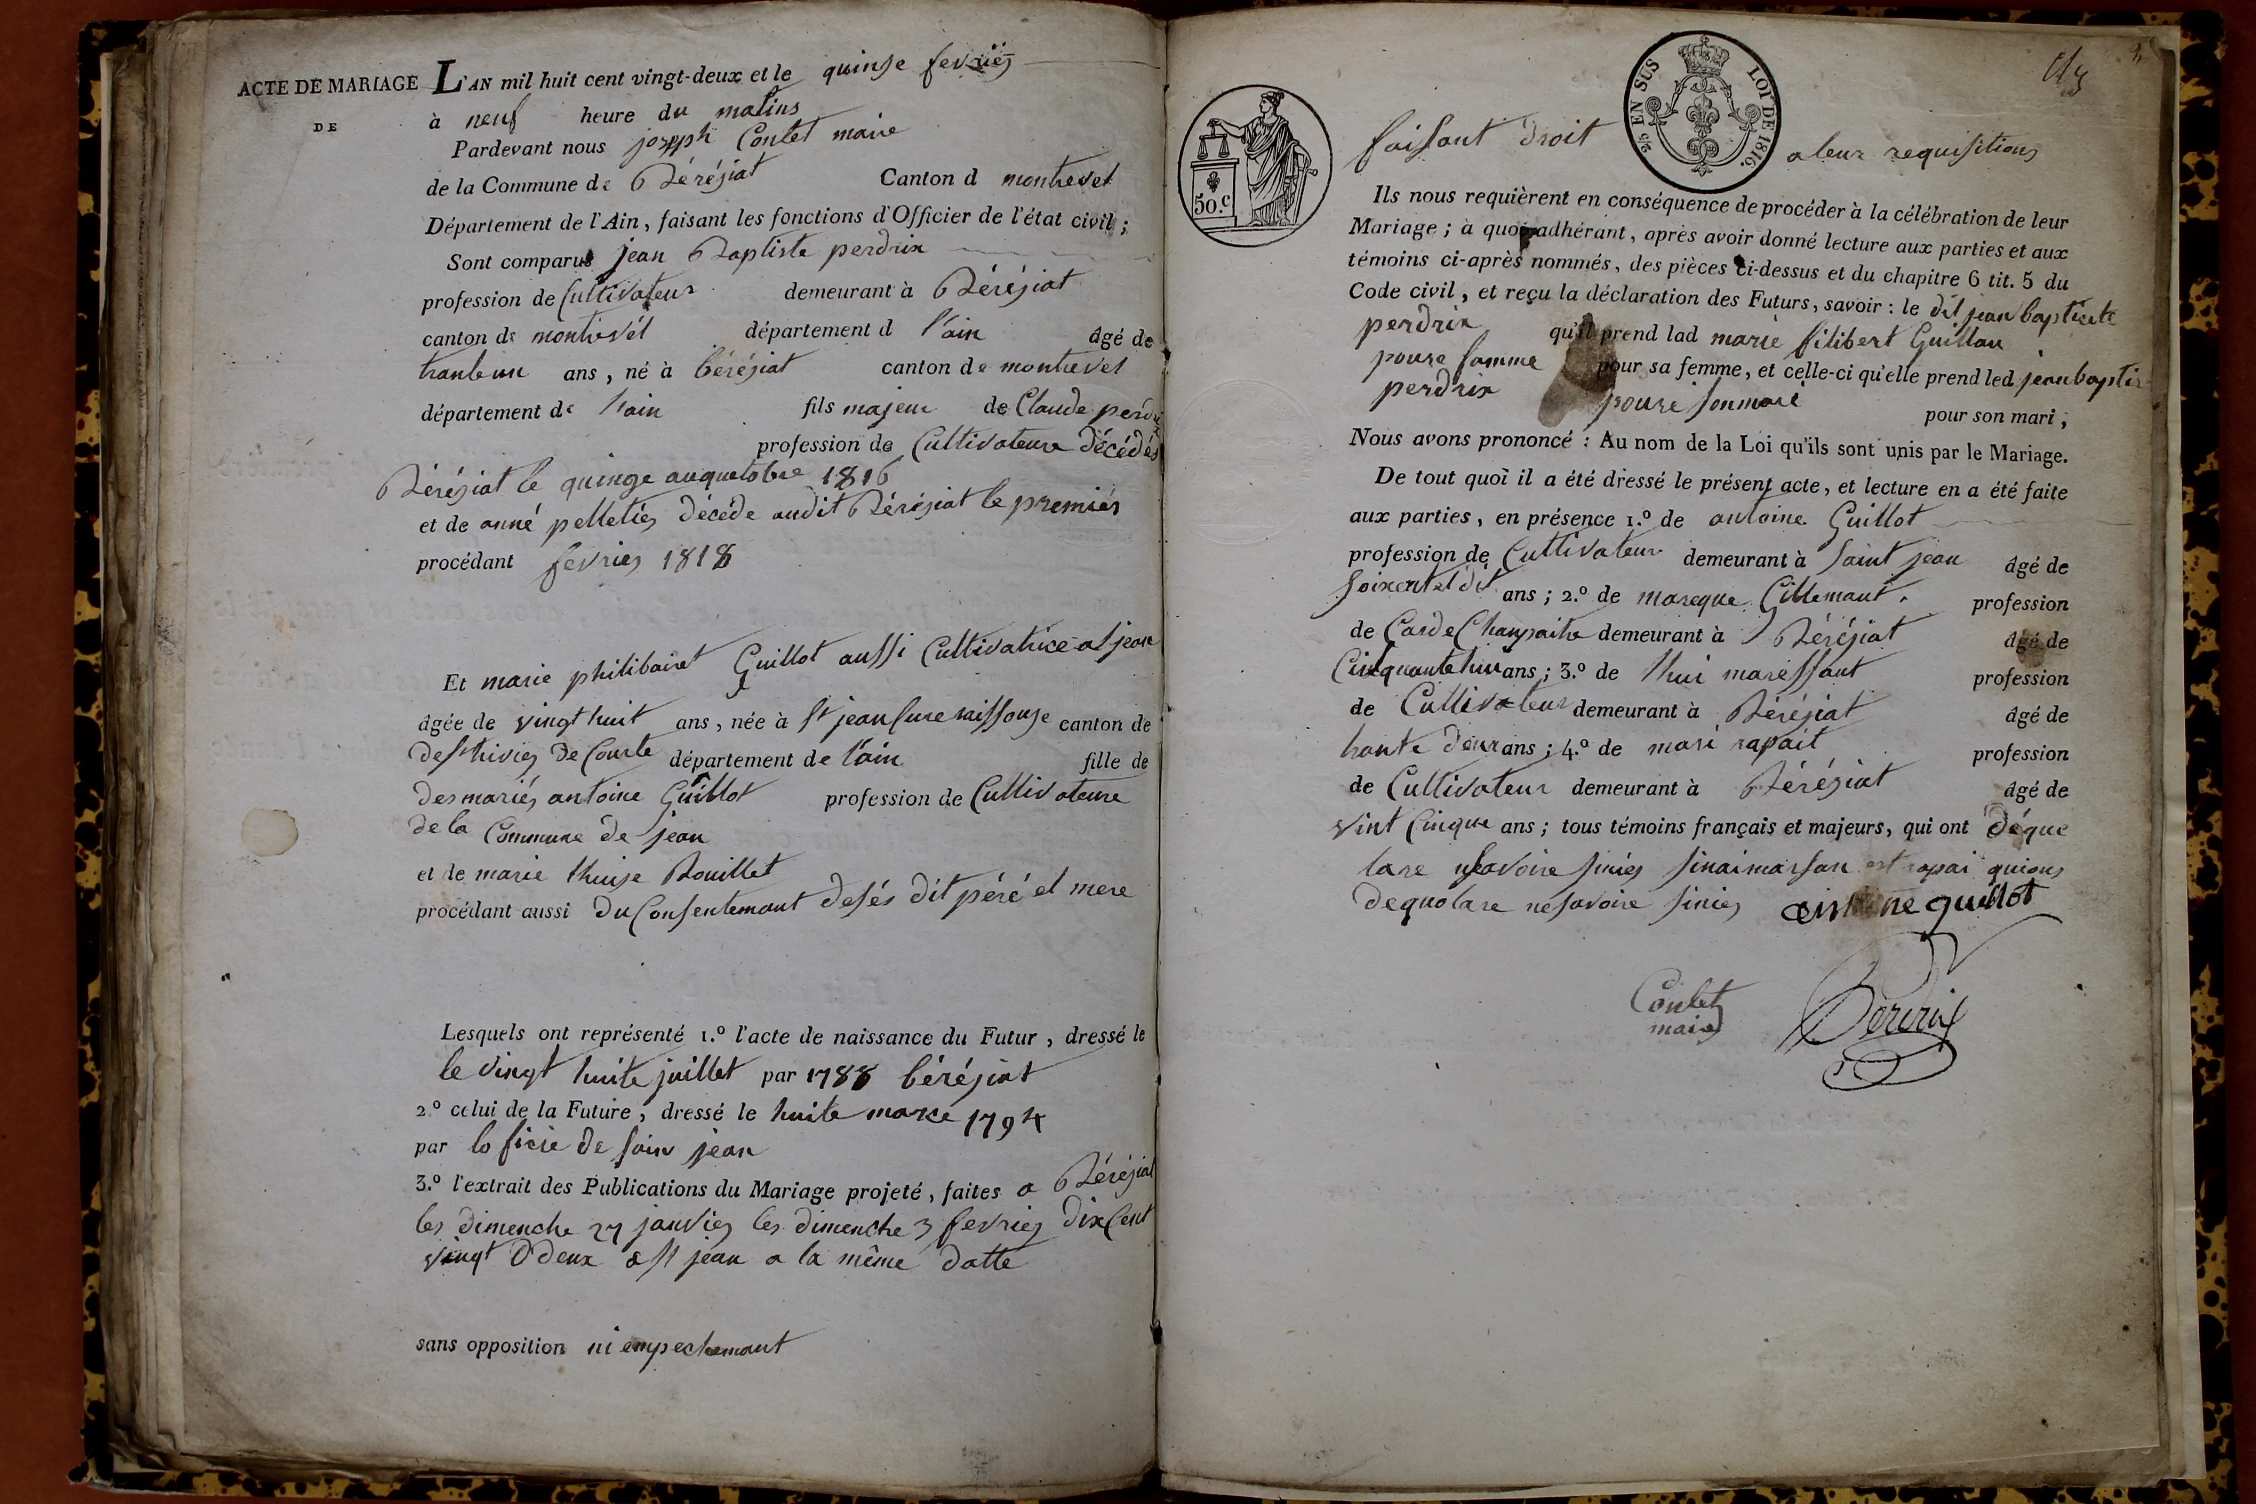 ACTE DE MARIAGE
DE
L'AN mil huit cent vingt-deux et le quinse fevrieѕ
à neuf heure du matins
Pardevant nous joseph Contet maire
de la Commune de Béréziat Canton d montrevel
Département de l'Ain, faisant les fonctions d'Officier de l'état civil;
Sont comparus jean Baptiste perdrix
profession de Cultivateur demeurant à Béréziat
canton de montrevél département d l'ain âgé de
trante un ans, né à béréziat canton de montrevel
département de l'ain fils majeur de Claude perdrix
profession de Cultivateure décédés
Béréziat le quinze auquetobre 1816
et de anné pelletier décéde audit Béréziat le premier
procédant fevrier 1818
Et marie philibairt Guillot aussi Cultivatrice a st jean
âgée de vingt huit ans, née à st jean sure raissouse canton de
de st trivier de Courte département de l'ain fille de
des mariés antoine Guillot profession de Cultivateure
de la Commune de jean
et de marie thuise Bouillet
procédant aussi du Consentemant desés dit péré et mere
Lesquels ont représenté 1.º l'acte de naissance du Futur, dressé le
le vingt huite juillet par 1788 béréziat
2.º celui de la Future, dressé le huite marse 1794
par lo ficie de sain jean
3.º l'extrait des Publications du Mariage projeté, faites a Béréziat
les dimenche 27 janvier les dimenche 3 fevrier dix Cent
vingt deux a st jean a la même datte
sans opposition ni empechemant
50.c
2/5 EN SUS LOI DE 1816.
faisant droit a leur requisitions
Ils nous requièrent en conséquence de procéder à la célébration de leur
Mariage; à quoi adhérant, après avoir donné lecture aux parties et aux
témoins ci-après nommés, des pièces ci-dessus et du chapitre 6 tit. 5 du
Code civil, et reçu la déclaration des Futurs, savoir: le dit jean baptiste
perdrix qu'il prend lad marie filibert Guillau
poure famme pour sa femme, et celle-ci qu'elle prend led jean baptis
perdrix poure son mari pour son mari;
Nous avons prononcé: Au nom de la Loi qu'ils sont unis par le Mariage.
De tout quoi il a été dressé le présent acte, et lecture en a été faite
aux parties, en présence 1.º de antoine Guillot
profession de Cultivateur demeurant à saint jean âgé de
soixent et dit ans; 2.º de mareque Gillemaut profession
de Garde Chanpaitre demeurant à Béréziat âgé de
Cinquante hui ans; 3.º de thui maressant profession
de Cultivateur demeurant à Béréziat âgé de
trante deux ans; 4.º de mari rapait profession
de Cultivateur demeurant à Béréziat âgé de
vint Cinque ans; tous témoins français et majeurs, qui ont déque
lare savoire sinier sinai marsan est rapai qui ons
dequolare ne savoire sinier antoine guillot
Contet
maire
Perdrix